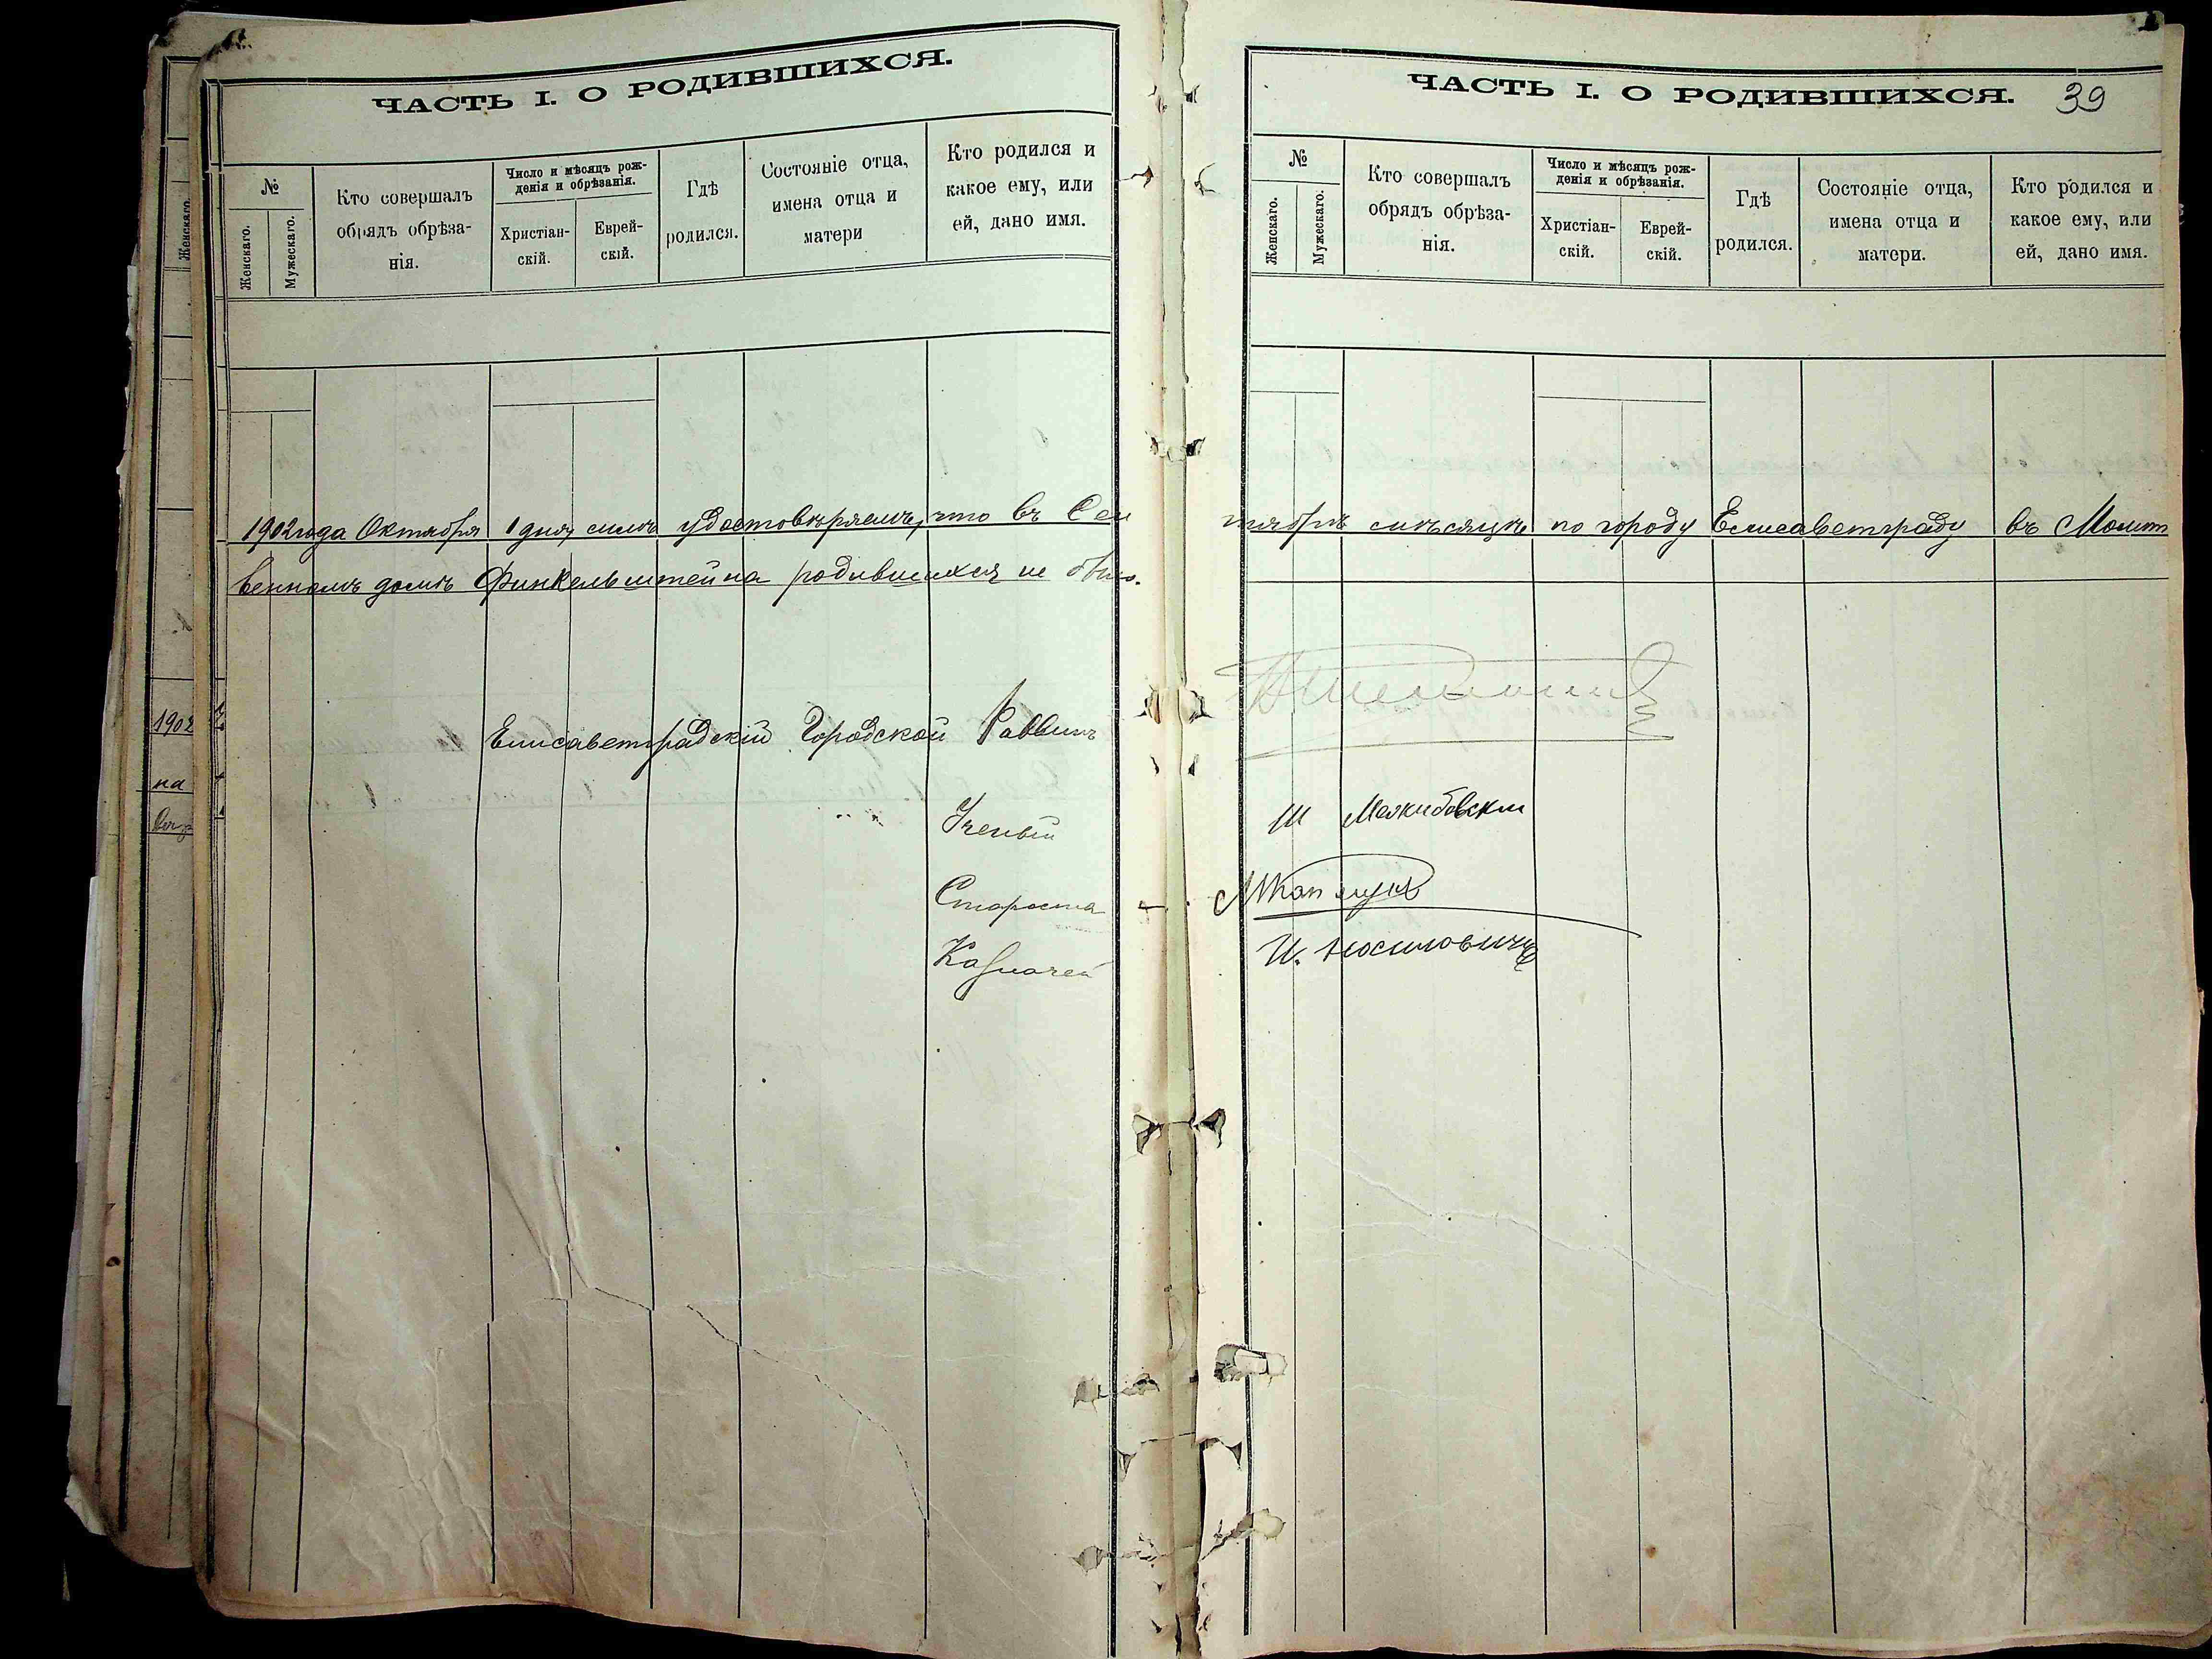 ЧАСТЬ I. О РОДИВШИХСЯ.
№
Женскаго.
Мужескаго.
Кто совершалъ
обрядъ обрѣза-
нія.
Число и мѣсяцъ рож-
денія и обрѣзанія.
Христіан-
скій.
Еврей-
скій.
Гдѣ
родился.
Состояніе отца,
имена отца и
матери
Кто родился и
какое ему, или
ей, дано имя.
ЧАСТЬ I. О РОДИВШИХСЯ. 39
№
Женскаго.
Мужескаго.
Кто совершалъ
обрядъ обрѣза-
нія.
Число и мѣсяцъ рож-
денія и обрѣзанія.
Христіан-
скій.
Еврей-
скій.
Гдѣ
родился.
Состояніе отца,
имена отца и
матери.
Кто родился и
какое ему, или
ей, дано имя.
1902 года Октября 1 дня, симъ удостовѣряемъ, что въ Сен тябрѣ мѣсяцѣ по городу Елисаветграду въ Молит
венномъ домѣ Финкельштейна родившихся не было.
Елисаветградскій Городской Раввинъ
Ученый Ш
Староста
Казначей И. Иосиловичъ
Женскаго.
1902
на